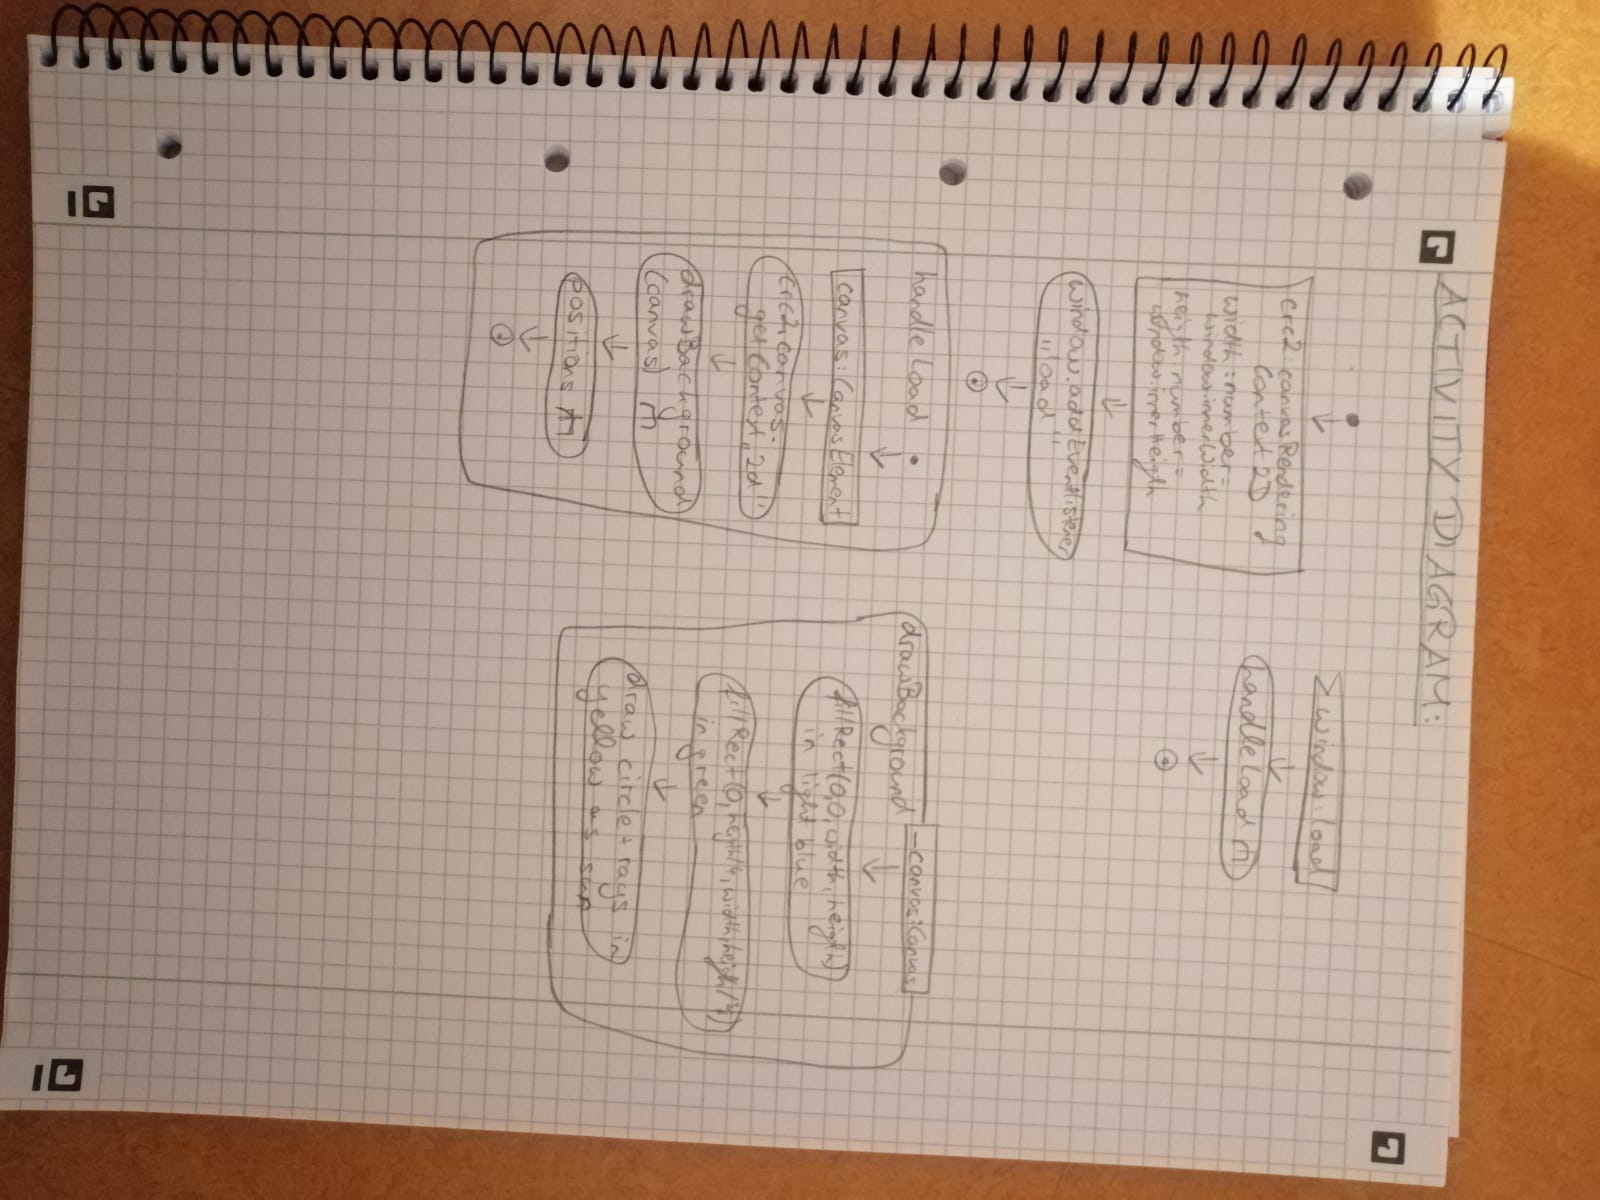 ACTIVITY DIAGRAM:
crc2: canvasRendering
Context 2D
width: number =
window.innerWidth
heigth: number =
window.innerHeigth
window.addEventlistener
„load"
window: load
handleload
handleload
canvas: CanvasElement
crc2: canvas.
getContext „2d"
drawBackground
(canvas)
positions
drawBackground
-canvas: Canvas
fillRect(0,0, width, heigth)
in light blue
fillRect(0, heigth/4, width, heigth/4)
in green
draw circle + rays in
yellow as sun